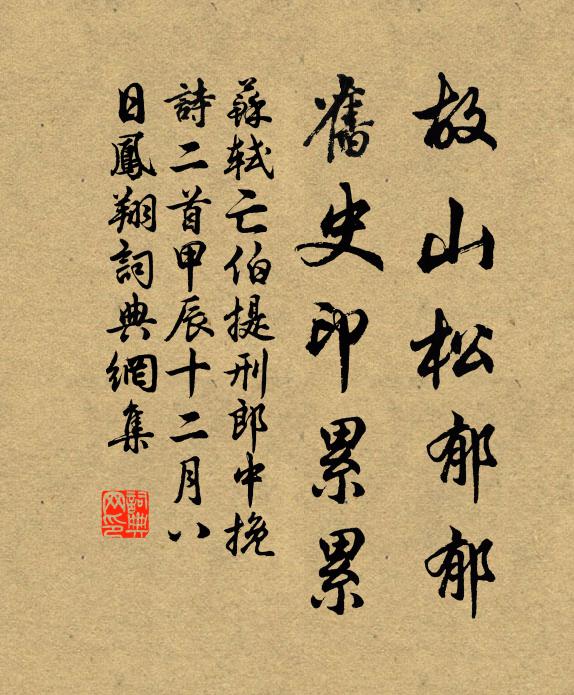 故山松郁郁
舊史印累累
蘇軾亡伯提刑郎中挽
詩二首甲辰十二月八
日鳳翔詞典網集
詞典网印